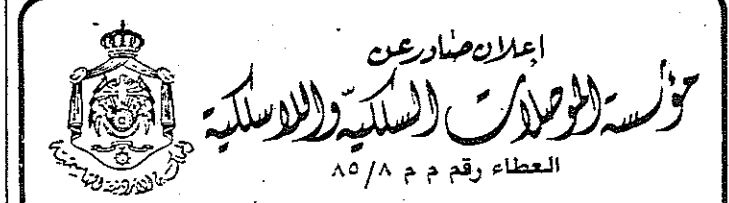 إعلان صادر عن
مؤسسة المواصلات السلكية واللاسلكية
العطاء رقم م م ٨٥/٨